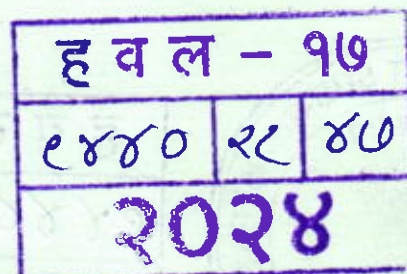 ह व ल - १७
९४४० २८ ४७
२०२४